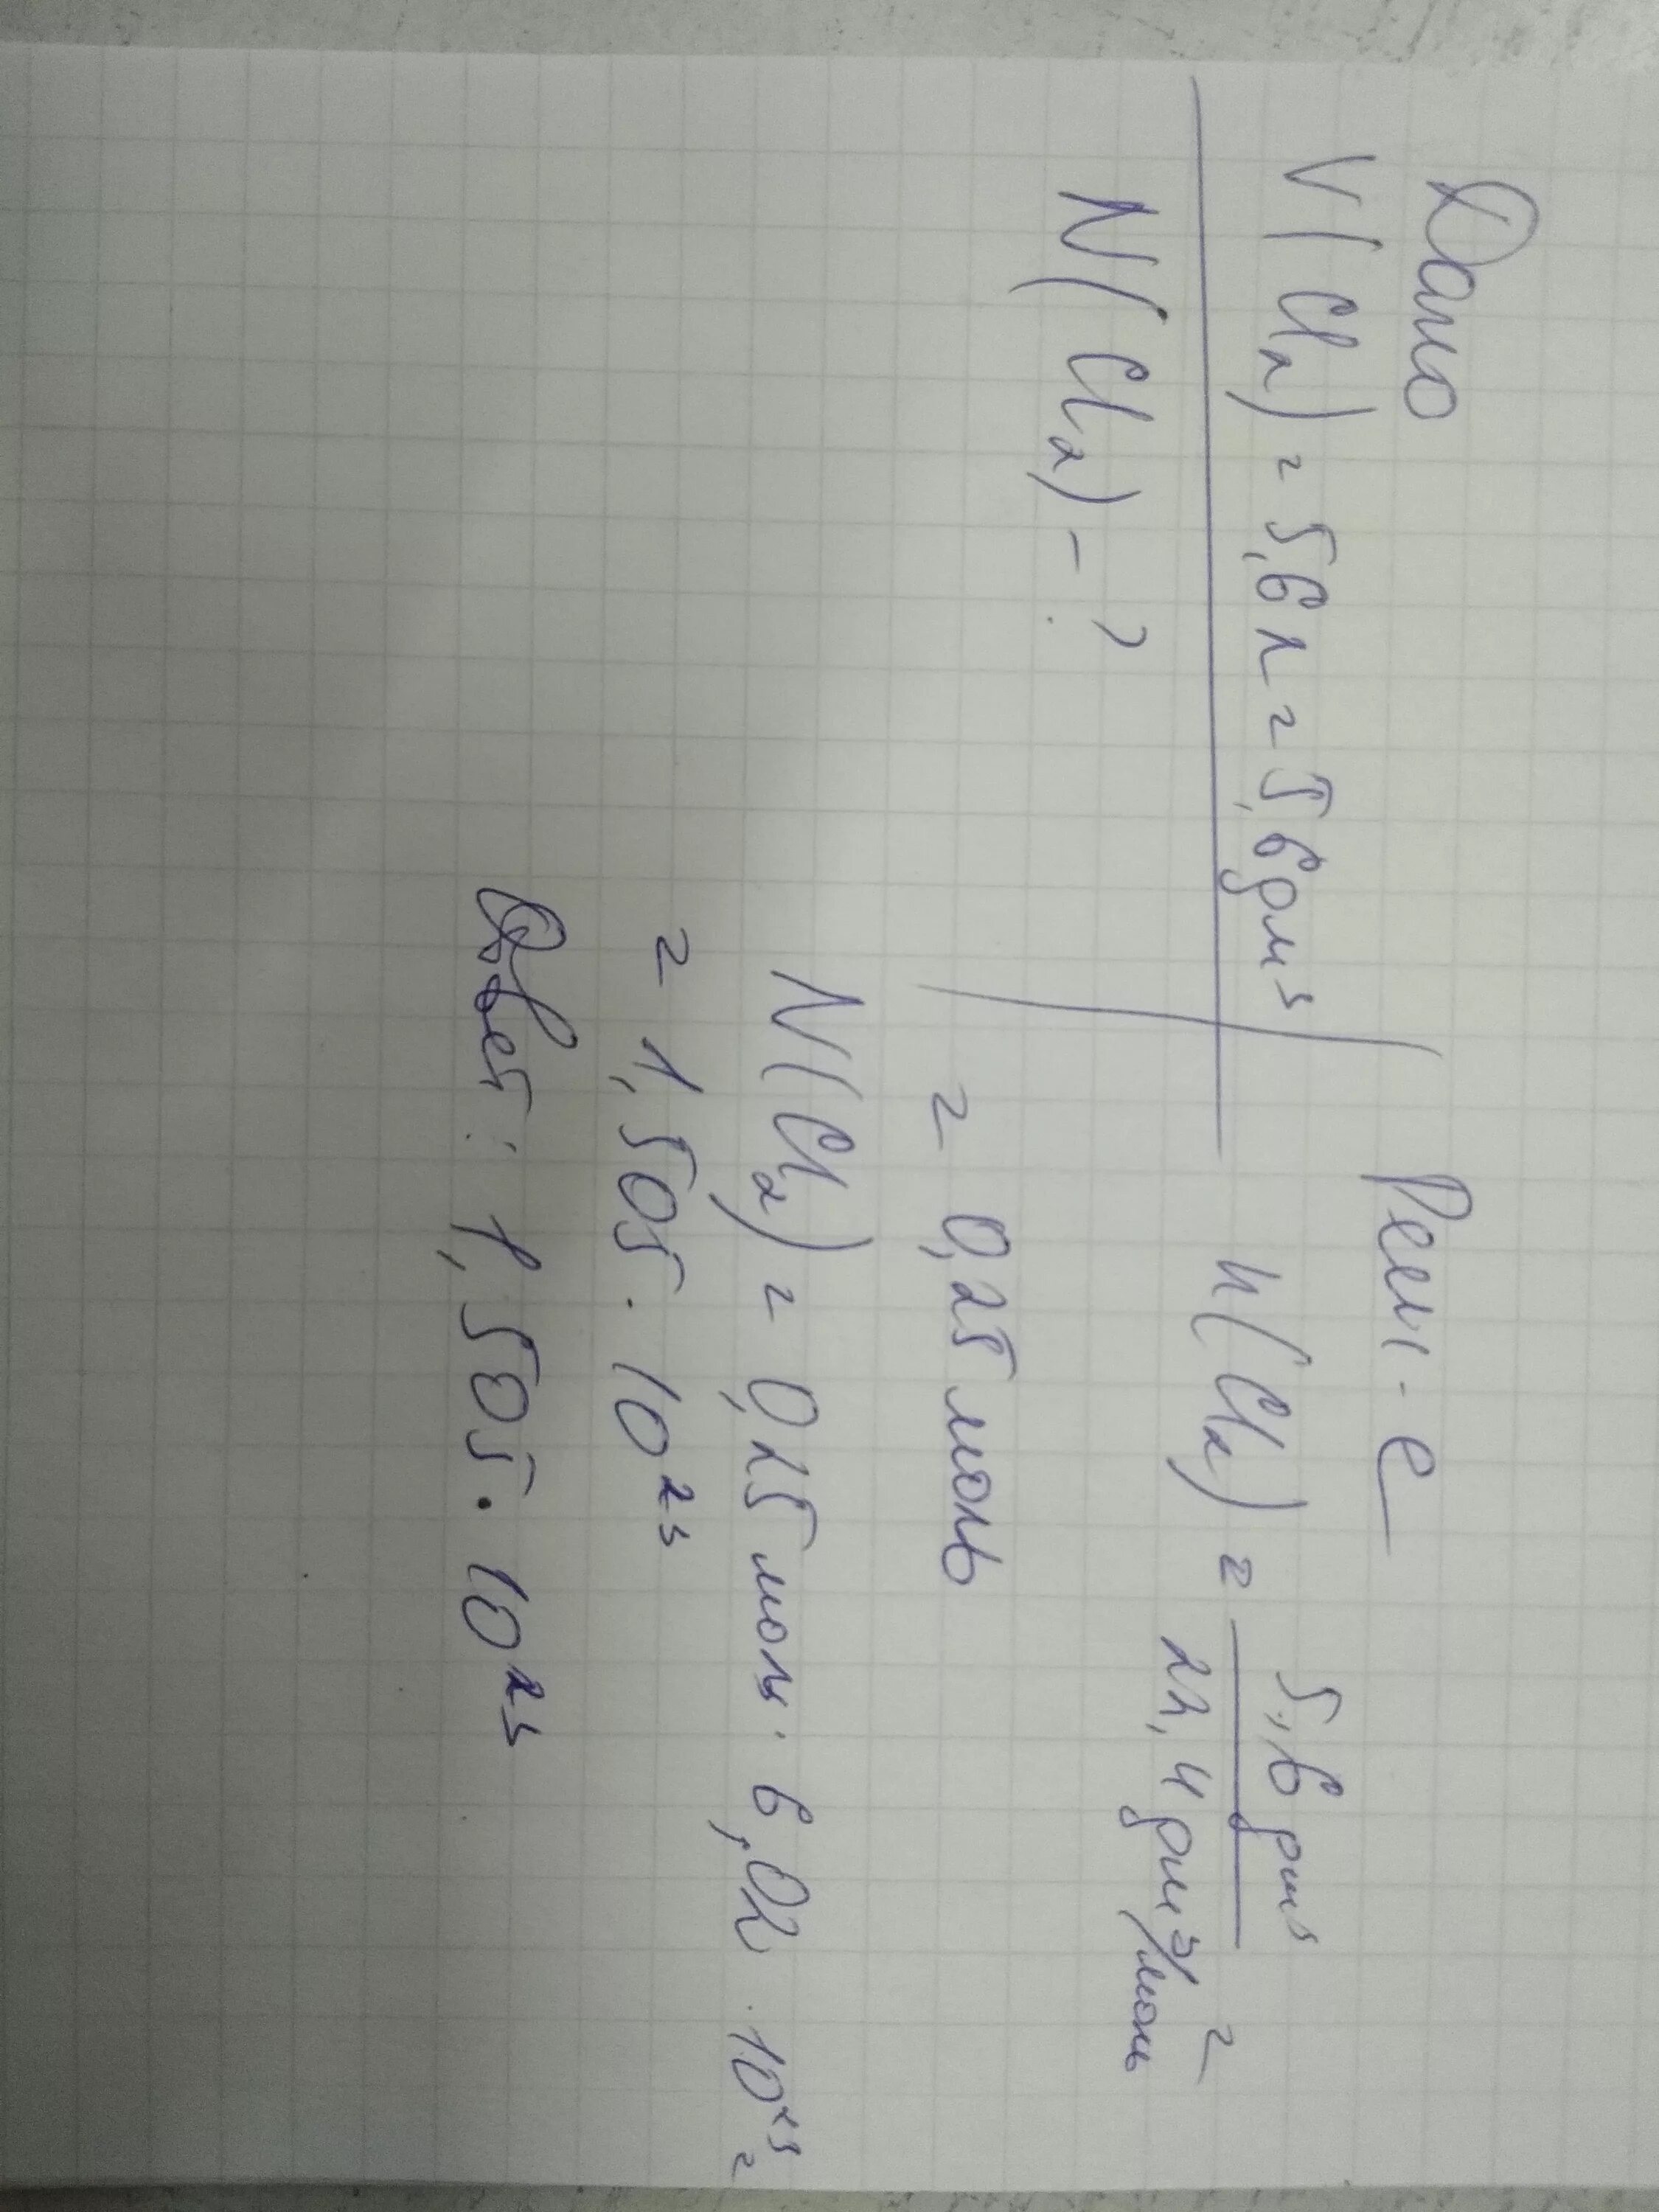 Дано
V(Cl2) = 5,6 л = 5,6 дм³
N(Cl2) - ?
Реш-е
n(Cl2) = 5,6 дм³ / 22,4 дм³/моль =
= 0,25 моль
N(Cl2) = 0,25 моль · 6,02 · 10²³ =
= 1,505 · 10²³
Ответ: 1,505 · 10²³